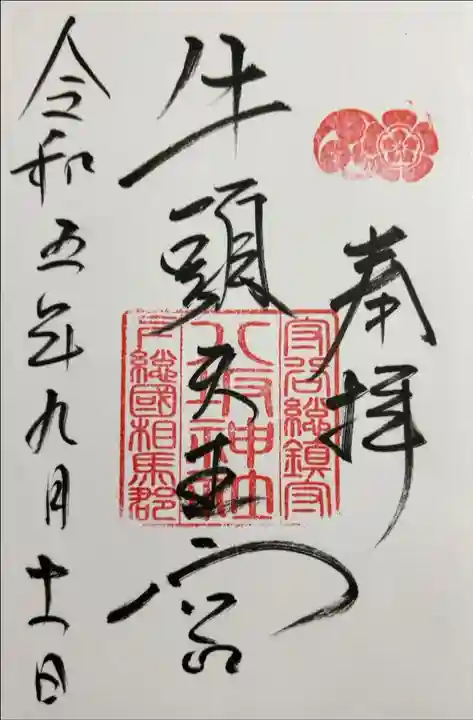 奉拝
守谷総鎮守
八坂神社
下総國相馬郡
牛頭天王宮
令和五年九月十一日